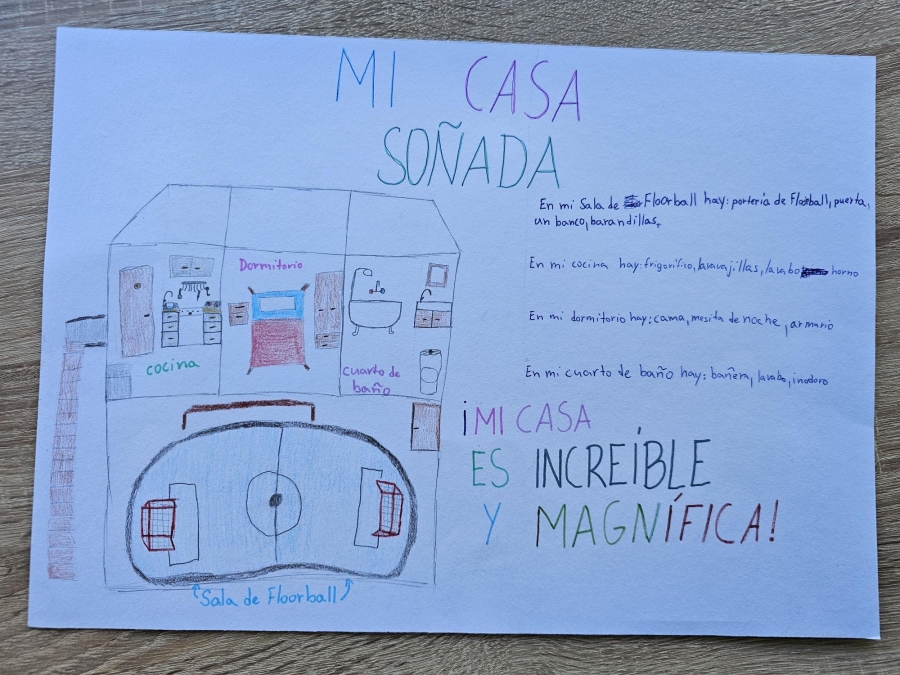 MI CASA
SOÑADA
En mi Sala de Floorball hay: portería de Floorball, puerta,
un banco, barandillas,
En mi cocina hay: frigorífico, lavavajillas, lavabo horno
En mi dormitorio hay: cama, mesita de noche, armario
En mi cuarto de baño hay: bañera, lavabo, inodoro
Dormitorio
cocina
cuarto de
baño
¡MI CASA
ES INCREÍBLE
Y MAGNÍFICA!
Sala de Floorball